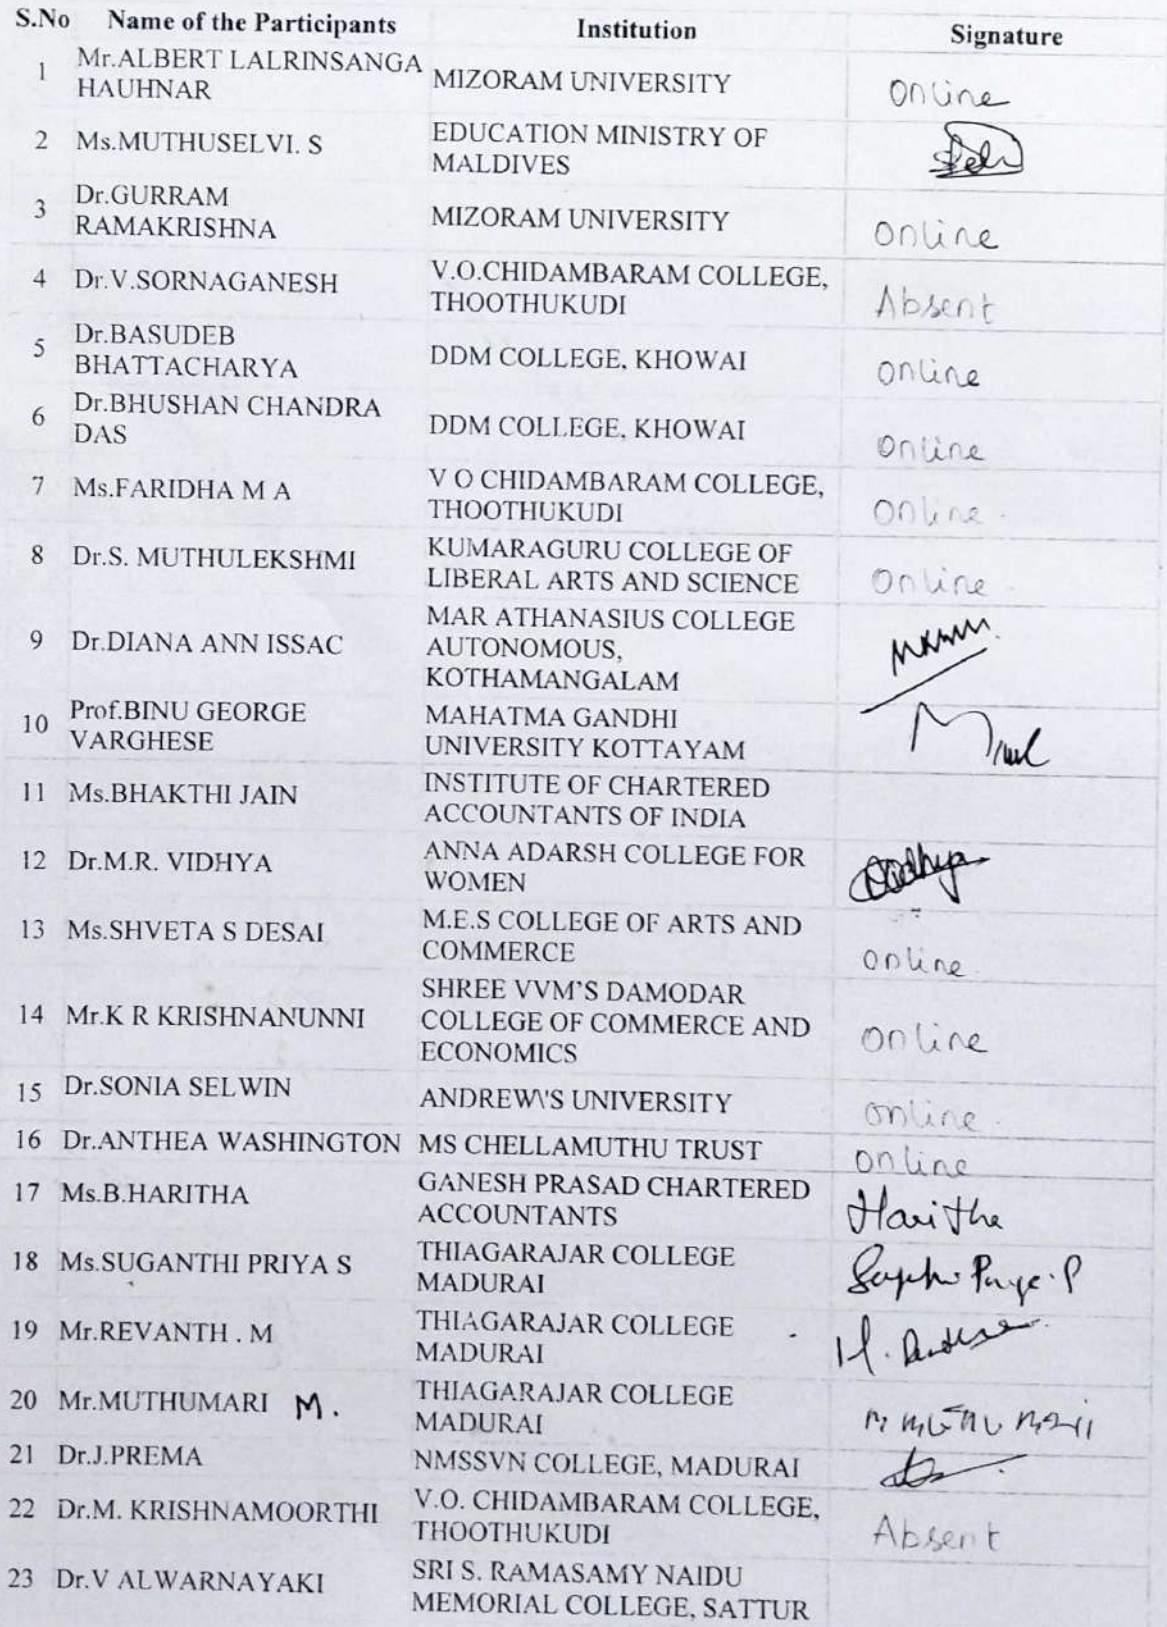 S.No Name of the Participants Institution Signature
1 Mr.ALBERT LALRINSANGA HAUHNAR MIZORAM UNIVERSITY Online
2 Ms.MUTHUSELVI. S EDUCATION MINISTRY OF MALDIVES
3 Dr.GURRAM RAMAKRISHNA MIZORAM UNIVERSITY Online
4 Dr.V.SORNAGANESH V.O.CHIDAMBARAM COLLEGE, THOOTHUKUDI Absent
5 Dr.BASUDEB BHATTACHARYA DDM COLLEGE, KHOWAI Online
6 Dr.BHUSHAN CHANDRA DAS DDM COLLEGE, KHOWAI Online
7 Ms.FARIDHA M A V O CHIDAMBARAM COLLEGE, THOOTHUKUDI Online.
8 Dr.S. MUTHULEKSHMI KUMARAGURU COLLEGE OF LIBERAL ARTS AND SCIENCE Online.
9 Dr.DIANA ANN ISSAC MAR ATHANASIUS COLLEGE AUTONOMOUS, KOTHAMANGALAM
10 Prof.BINU GEORGE VARGHESE MAHATMA GANDHI UNIVERSITY KOTTAYAM
11 Ms.BHAKTHI JAIN INSTITUTE OF CHARTERED ACCOUNTANTS OF INDIA
12 Dr.M.R. VIDHYA ANNA ADARSH COLLEGE FOR WOMEN
13 Ms.SHVETA S DESAI M.E.S COLLEGE OF ARTS AND COMMERCE Online.
14 Mr.K R KRISHNANUNNI SHREE VVM'S DAMODAR COLLEGE OF COMMERCE AND ECONOMICS Online
15 Dr.SONIA SELWIN ANDREW\'S UNIVERSITY Online.
16 Dr.ANTHEA WASHINGTON MS CHELLAMUTHU TRUST Online
17 Ms.B.HARITHA GANESH PRASAD CHARTERED ACCOUNTANTS Haritha
18 Ms.SUGANTHI PRIYA S THIAGARAJAR COLLEGE MADURAI
19 Mr.REVANTH . M THIAGARAJAR COLLEGE MADURAI
20 Mr.MUTHUMARI M. THIAGARAJAR COLLEGE MADURAI
21 Dr.J.PREMA NMSSVN COLLEGE, MADURAI
22 Dr.M. KRISHNAMOORTHI V.O. CHIDAMBARAM COLLEGE, THOOTHUKUDI Absent
23 Dr.V ALWARNAYAKI SRI S. RAMASAMY NAIDU MEMORIAL COLLEGE, SATTUR